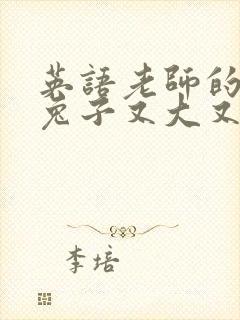 英語老師的
兔子又大又
李培